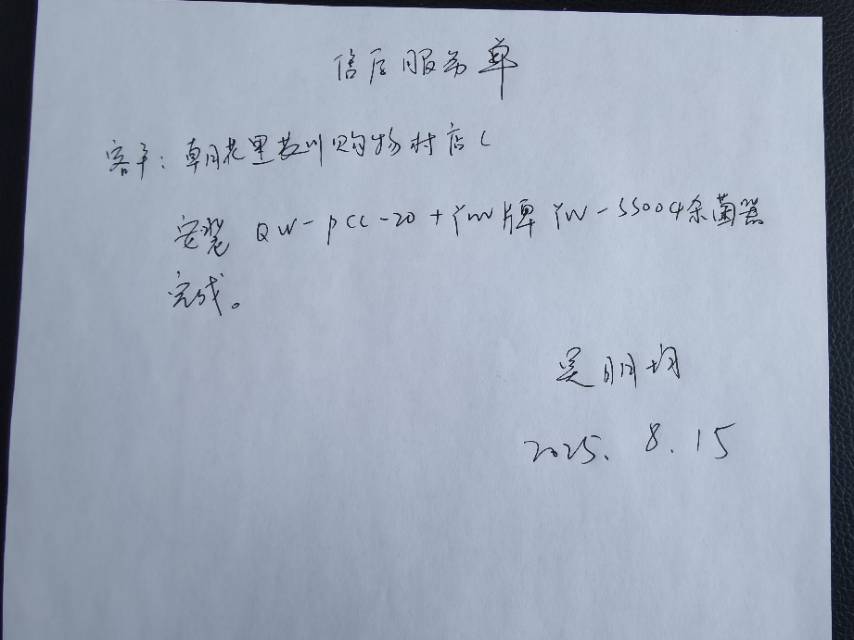 售后服务单
客户: 朝花里 购物村店
安装 QW-PCC-20+YW牌 YW-55004杀菌器
完成。
吴朋均
2025.8.15